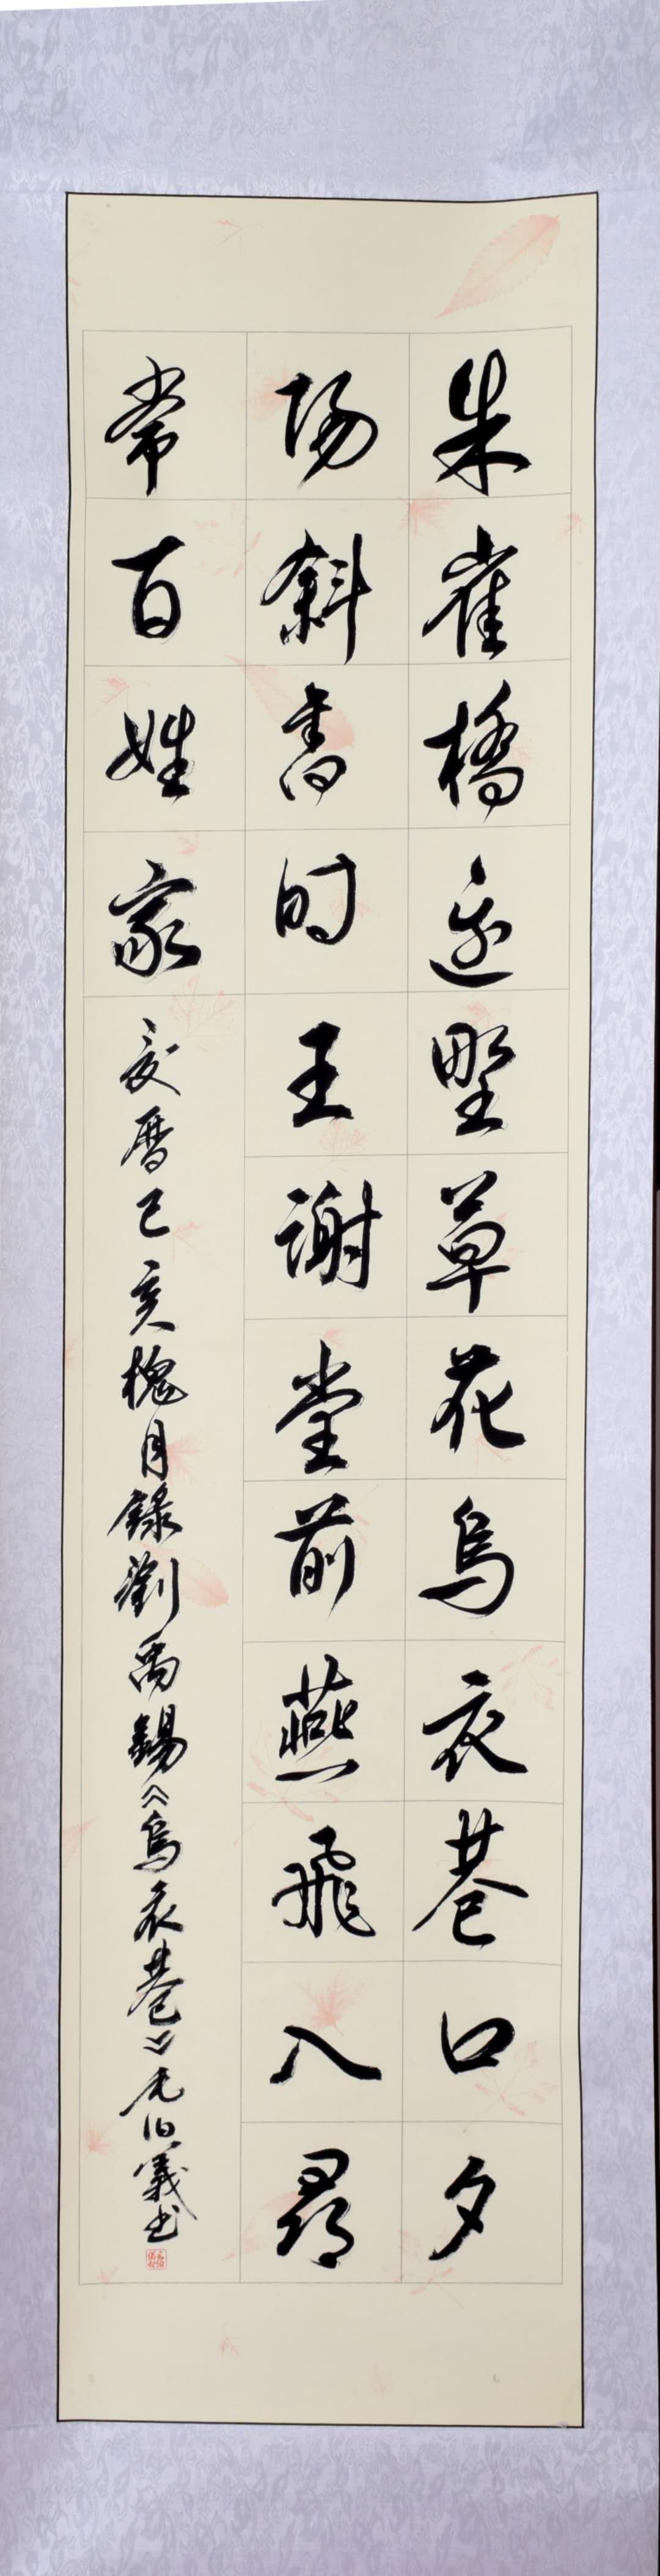 朱雀橋边野草花烏衣巷口夕
陽斜舊时王謝堂前燕飛入尋
常百姓家
夏曆己亥槐月錄劉禹錫《烏衣巷》元伯義书